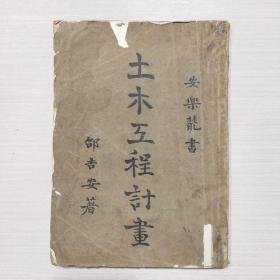 安樂龍書
土木工程計畫
邵吉安著